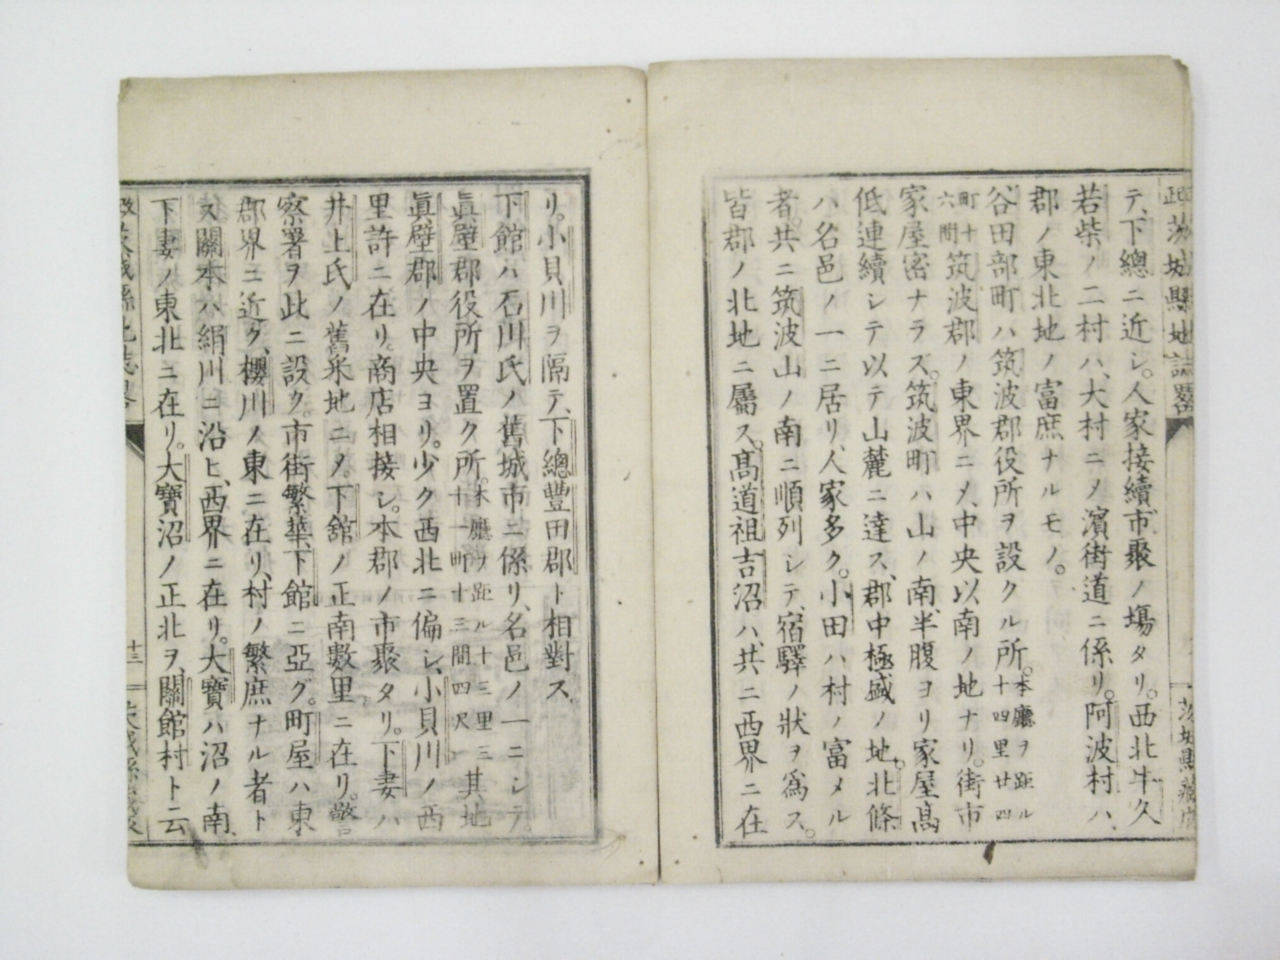 茨城縣地誌畧
テ、下總ニ近シ。人家接續市聚ノ場タリ。西北牛久
若柴ノ二村ハ、大村ニメ濱街道ニ係リ。阿波村ハ、
郡ノ東北地ノ富庶ナルモノ。
谷田部町ハ筑波郡役所ヲ設クル所。本廳ヲ距ル十四里廿四
町十六間筑波郡ノ東界ニメ、中央以南ノ地ナリ。街市
家屋密ナラス。筑波町ハ山ノ南、半腹ヨリ家屋髙
低連續シテ以テ山麓ニ達ス、郡中極盛ノ地。北條
ハ名邑ノ一ニ居リ、人家多ク。小田ハ村ノ富メル
者。共ニ筑波山ノ南ニ順列シテ、宿驛ノ狀ヲ爲ス。
皆郡ノ北地ニ屬ス。髙道祖吉沼ハ、共ニ西界ニ在
リ。小貝川ヲ隔テ、下總豐田郡ト相對ス
下館ハ石川氏ノ舊城市ニ係リ、名邑ノ一ニシテ。
眞壁郡役所ヲ置ク所。本廳ヲ距ル十三里三十一町十三間四尺其地
眞壁郡ノ中央ヨリ。少ク西北ニ偏シ、小貝川ノ西
里許ニ在リ。商店相接シ。本郡ノ市聚タリ。下妻ハ
井上氏ノ舊采地ニメ。下館ノ正南數里ニ在リ。警
察署ヲ此ニ設ク。市街繁華、下館ニ亞グ。町屋ハ東
郡界ニ近ク、櫻川ノ東ニ在リ、村ノ繁庶ナル者ト
ス。關本ハ絹川ニ沿ヒ、西界ニ在リ。大寶ハ沼ノ南、
下妻ノ東北ニ在リ。大寶沼ノ正北ヲ、關館村ト云
十三